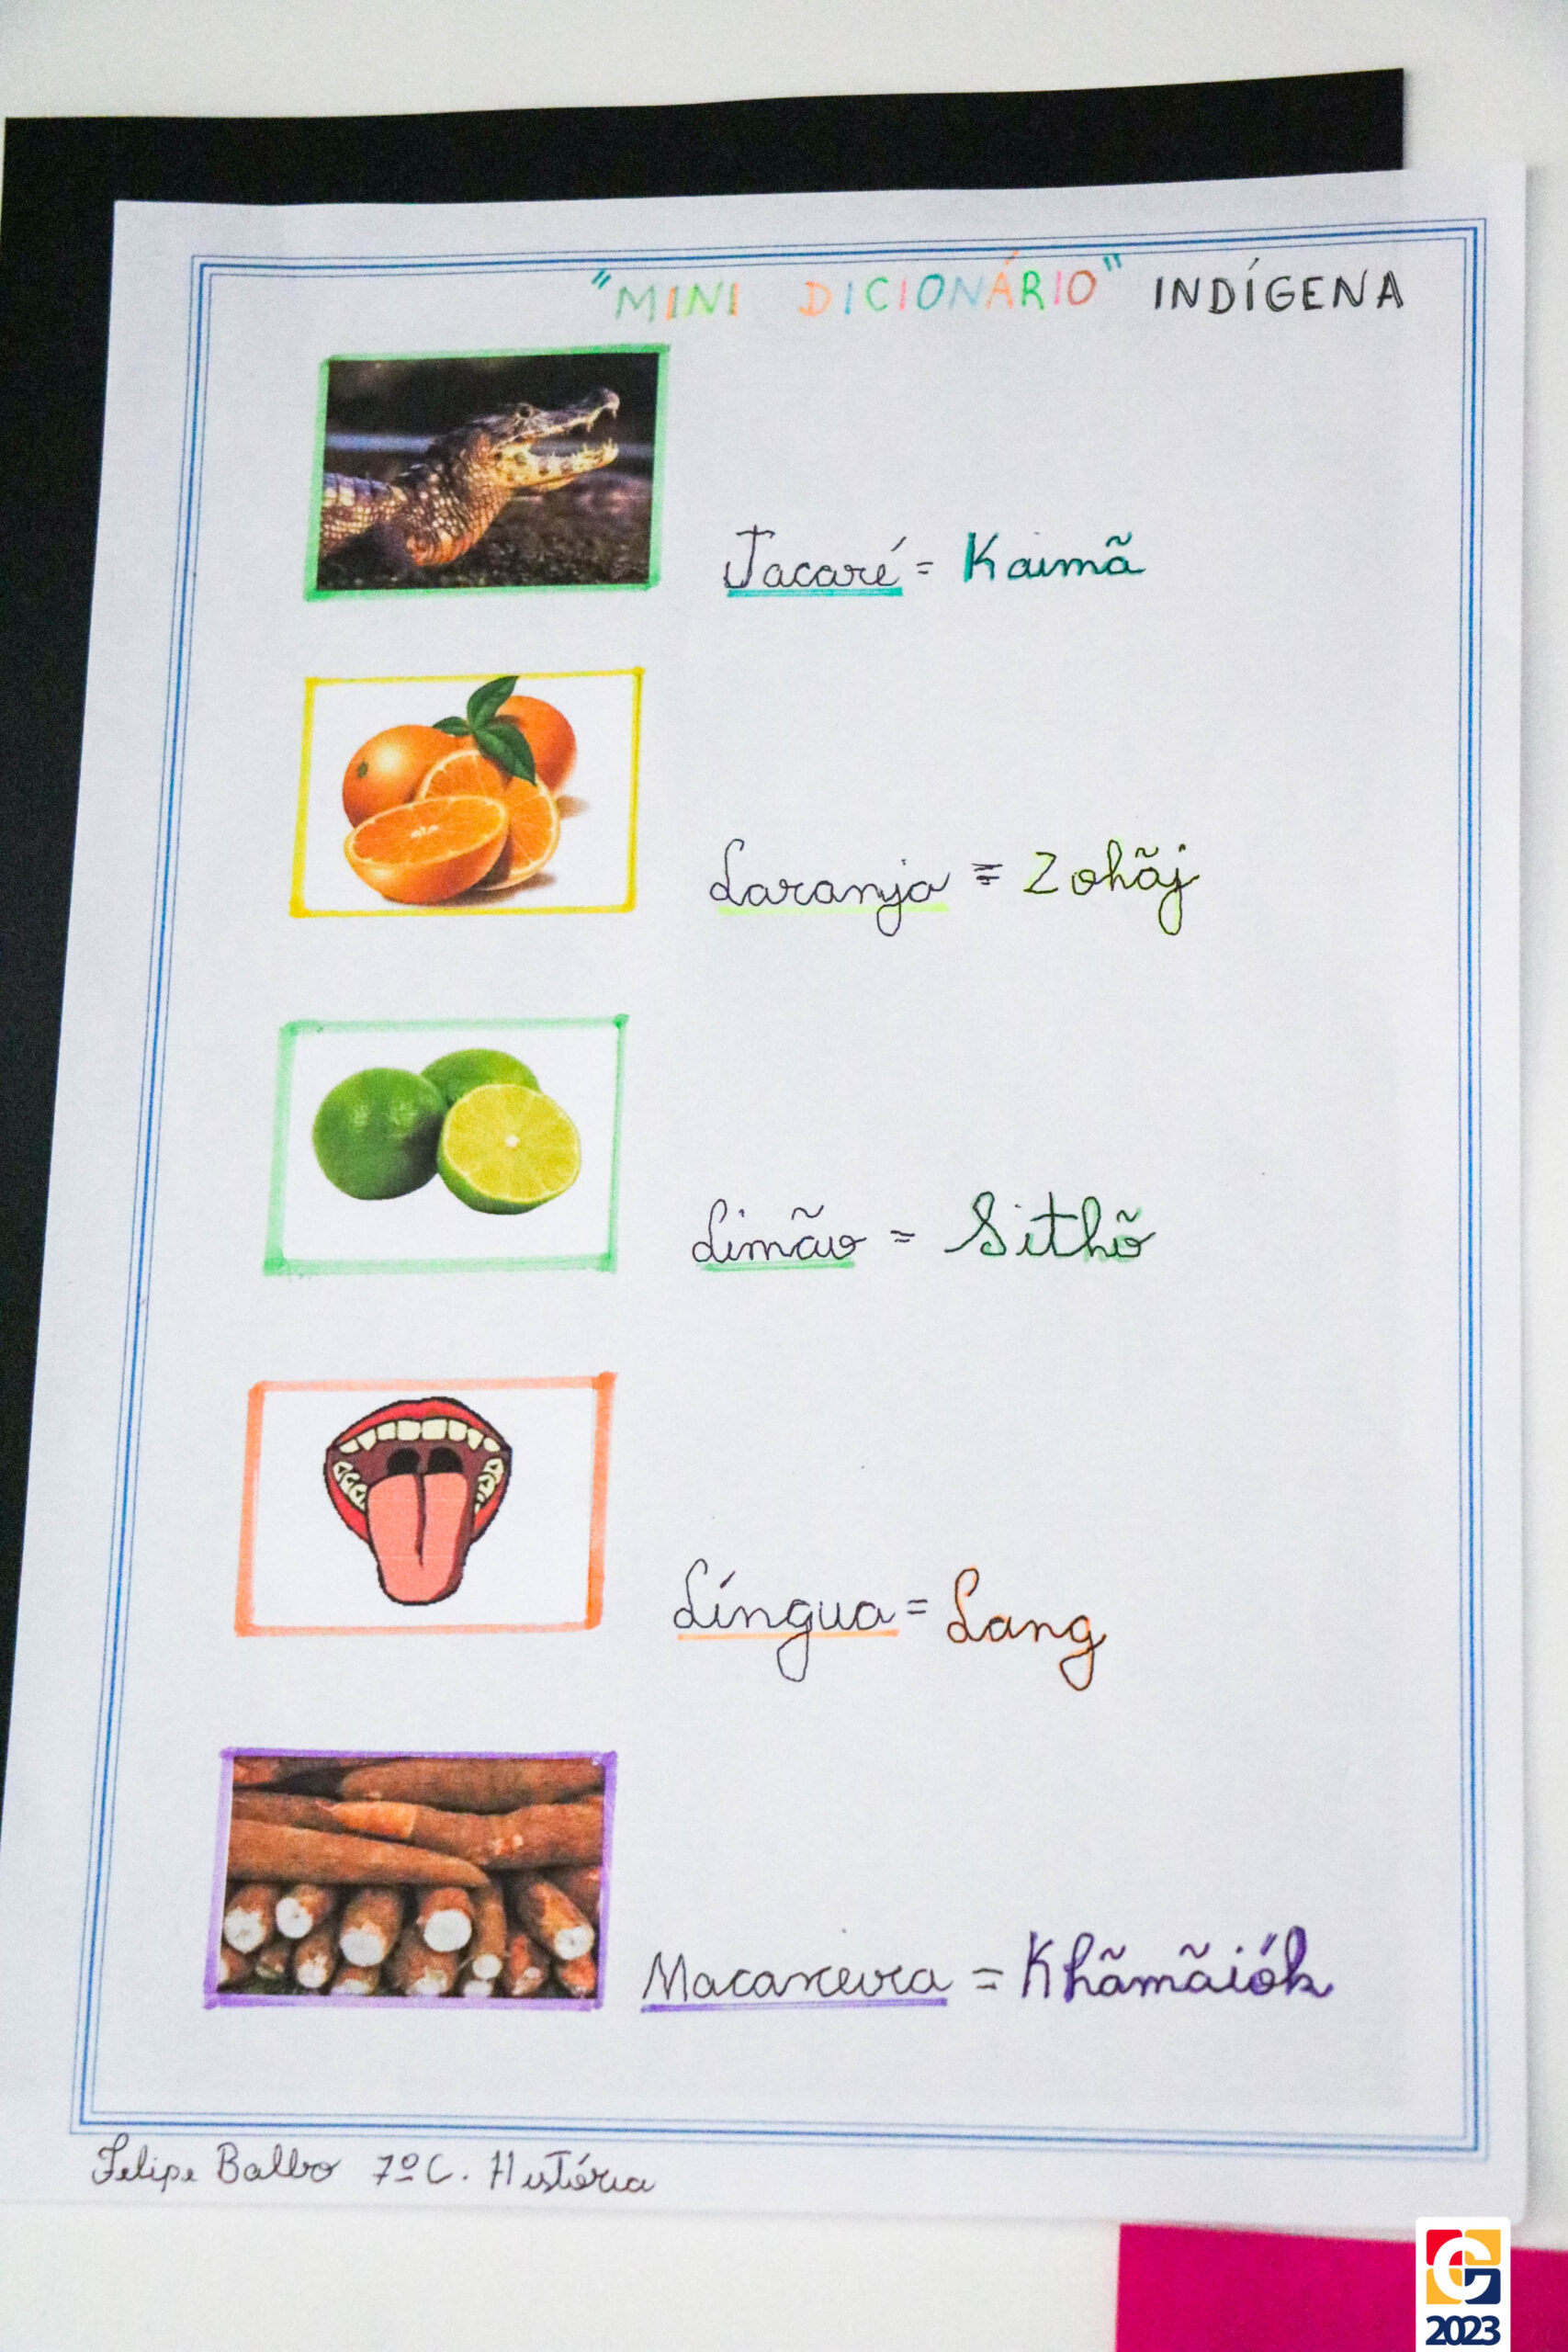 "MINI DICIONÁRIO" INDÍGENA
Jacaré = Kaimã
Laranja = Zohãj
Limão = Sithõ
Língua = Lang
Macaxeira = Khãmãiók
Felipe Balbo 7º C. História
G
2023